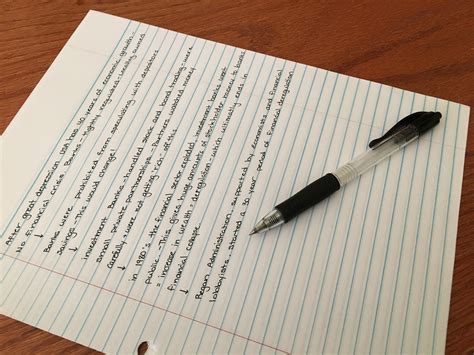 After great depression USA has 40 years of economic growth -
No financial crisis. Banks - highly regulated - Locally owned
↓ Banks were prohibited from speculating with depositors
savings - This would change!
investment Banks - handled stock and bond trading - were
small private partnerships - Partners watched money
carefully - were not getting rich off this
↓ in 1980's the financial sector exploded - investment banks went
public - This gives huge amounts of stockholder money to banks
= increase in wealth = deregulation - which ultimately ends in
financial collapse
↓ Regan Administration - supported by economists and financial
lobbyists - started a 30 year period of financial deregulation